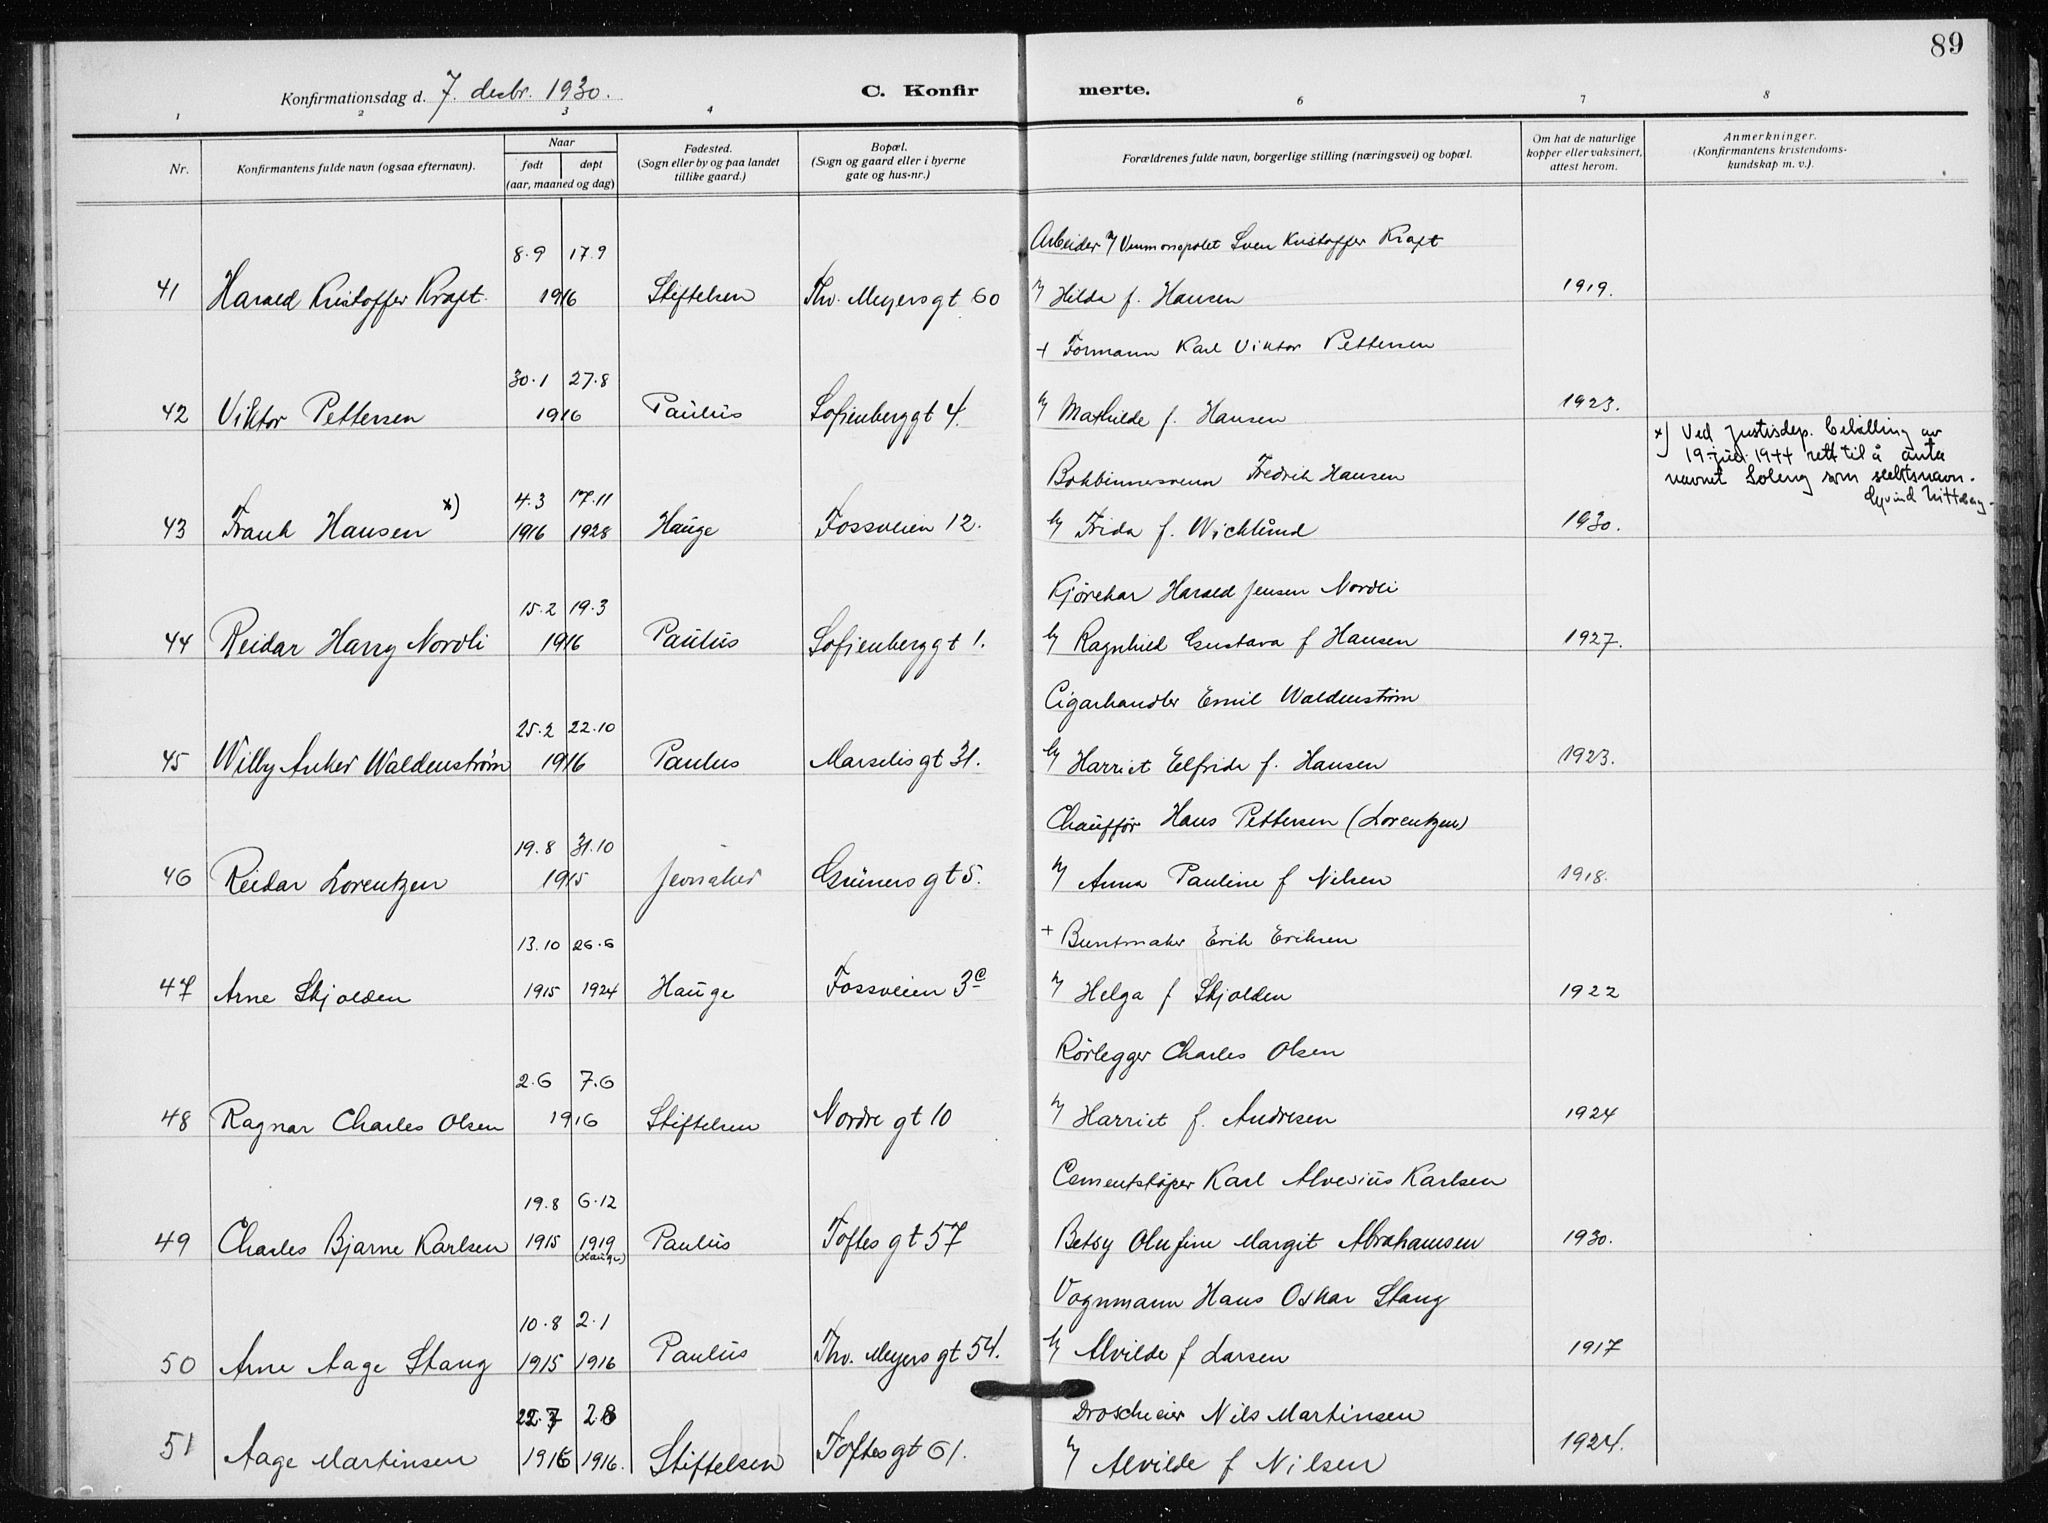 89
Konfirmationsdag d. 7. desbr. 1930.
C. Konfir merte.
1 2 3 4 6 7 8
Nr.
Konfirmantens fulde navn (ogsaa efternavn).
Naar
født døpt
(aar, maaned og dag)
Fødested.
(Sogn eller by og paa landet
tillike gaard.)
Bopæl.
(Sogn og gaard eller i byerne
gate og hus-nr.)
Forældrenes fulde navn, borgerlige stilling (næringsvei) og bopæl.
Om hat de naturlige
kopper eller vaksinert,
attest herom.
Anmerkninger.
(Konfirmantens kristendoms-
kundskap m. v.).
8.9 17.9 Arbeider v/ Vinmonopolet Sven Kristoffer Kraft
41 Harald Kristoffer Kraft. 1916 Stiftelsen Thv. Meyers gt 60 Hilda f. Hansen 1919.
+ Formann Karl Viktor Pettersen
30.1 27.8
42 Viktor Pettersen 1916 Paulus Sofienberggt 4. Mathilde f. Hansen 1923.
x) Ved Justisdep. bevilling av
19 juli 1944 rett til å anta
navnet Soleng som slektsnavn.
Eyvind
4.3 17.11 Bokbinnersvenn Fredrik Hansen
43 Frank Hansen x) 1916 1928 Hauge Fossveien 12. Frida f. Wicklund 1930.
15.2 19.3 Kjørekar Harald Jensen Nordli
44 Reidar Harry Nordli 1916 Paulus Sofienberggt 1. Ragnhild Gustava f Hansen 1927.
25.2 22.10 Cigarhandler Emil Waldenstrøm
45 Willy Anker Waldenstrøm 1916 Paulus Marselis gt 31. Harriet Elfrida f. Hansen 1923.
19.8 31.10 Chauffør Hans Pettersen (Lorentzen)
46 Reidar Lorentzen 1915 Jevnaker Grüners gt 5. Anna Pauline f Nilsen 1918.
13.10 26.6 + Buntmaker Erik Eriksen
47 Arne Skjolden 1915 1924 Hauge Fossveien 3c Helga f Skjolden 1922
2.6 7.6 Rørlegger Charles Olsen
48 Ragnar Charles Olsen 1916 Stiftelsen Nordre gt 10 Harriet f. Andresen 1924
19.8 6.12 Cementstøper Karl Karlsen
49 Charles Bjarne Karlsen 1915 1919 Paulus Toftes gt 57 Betsy Olufine Margit Abrahamsen 1930.
(Hauge)
10.8 2.1 Vognmann Hans Oskar Stang
50 Arne Aage Stang 1915 1916 Paulus Thv. Meyers gt 54. Alvilde f Larsen 1917
22.7 Droscheeier Nils Martinsen
51 Aage Martinsen 1916. Stiftelsen Toftes gt 61. Alvilde f Nilsen 1924.